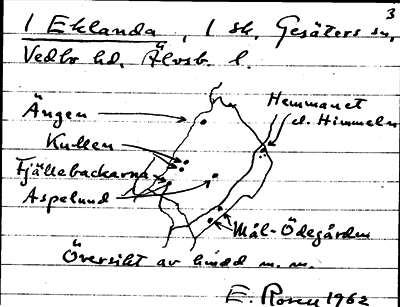 3
1 Eklanda, 1 sk, Gesäters sn,
Vedbo hd. Älvsb. l.
Ängen
Hemmanet
el. Himmeln
Kullen
Fjällebackarna
Aspelund
Mål-Ödegården
Översikt av bindd m. m.
E. Rosen 1962